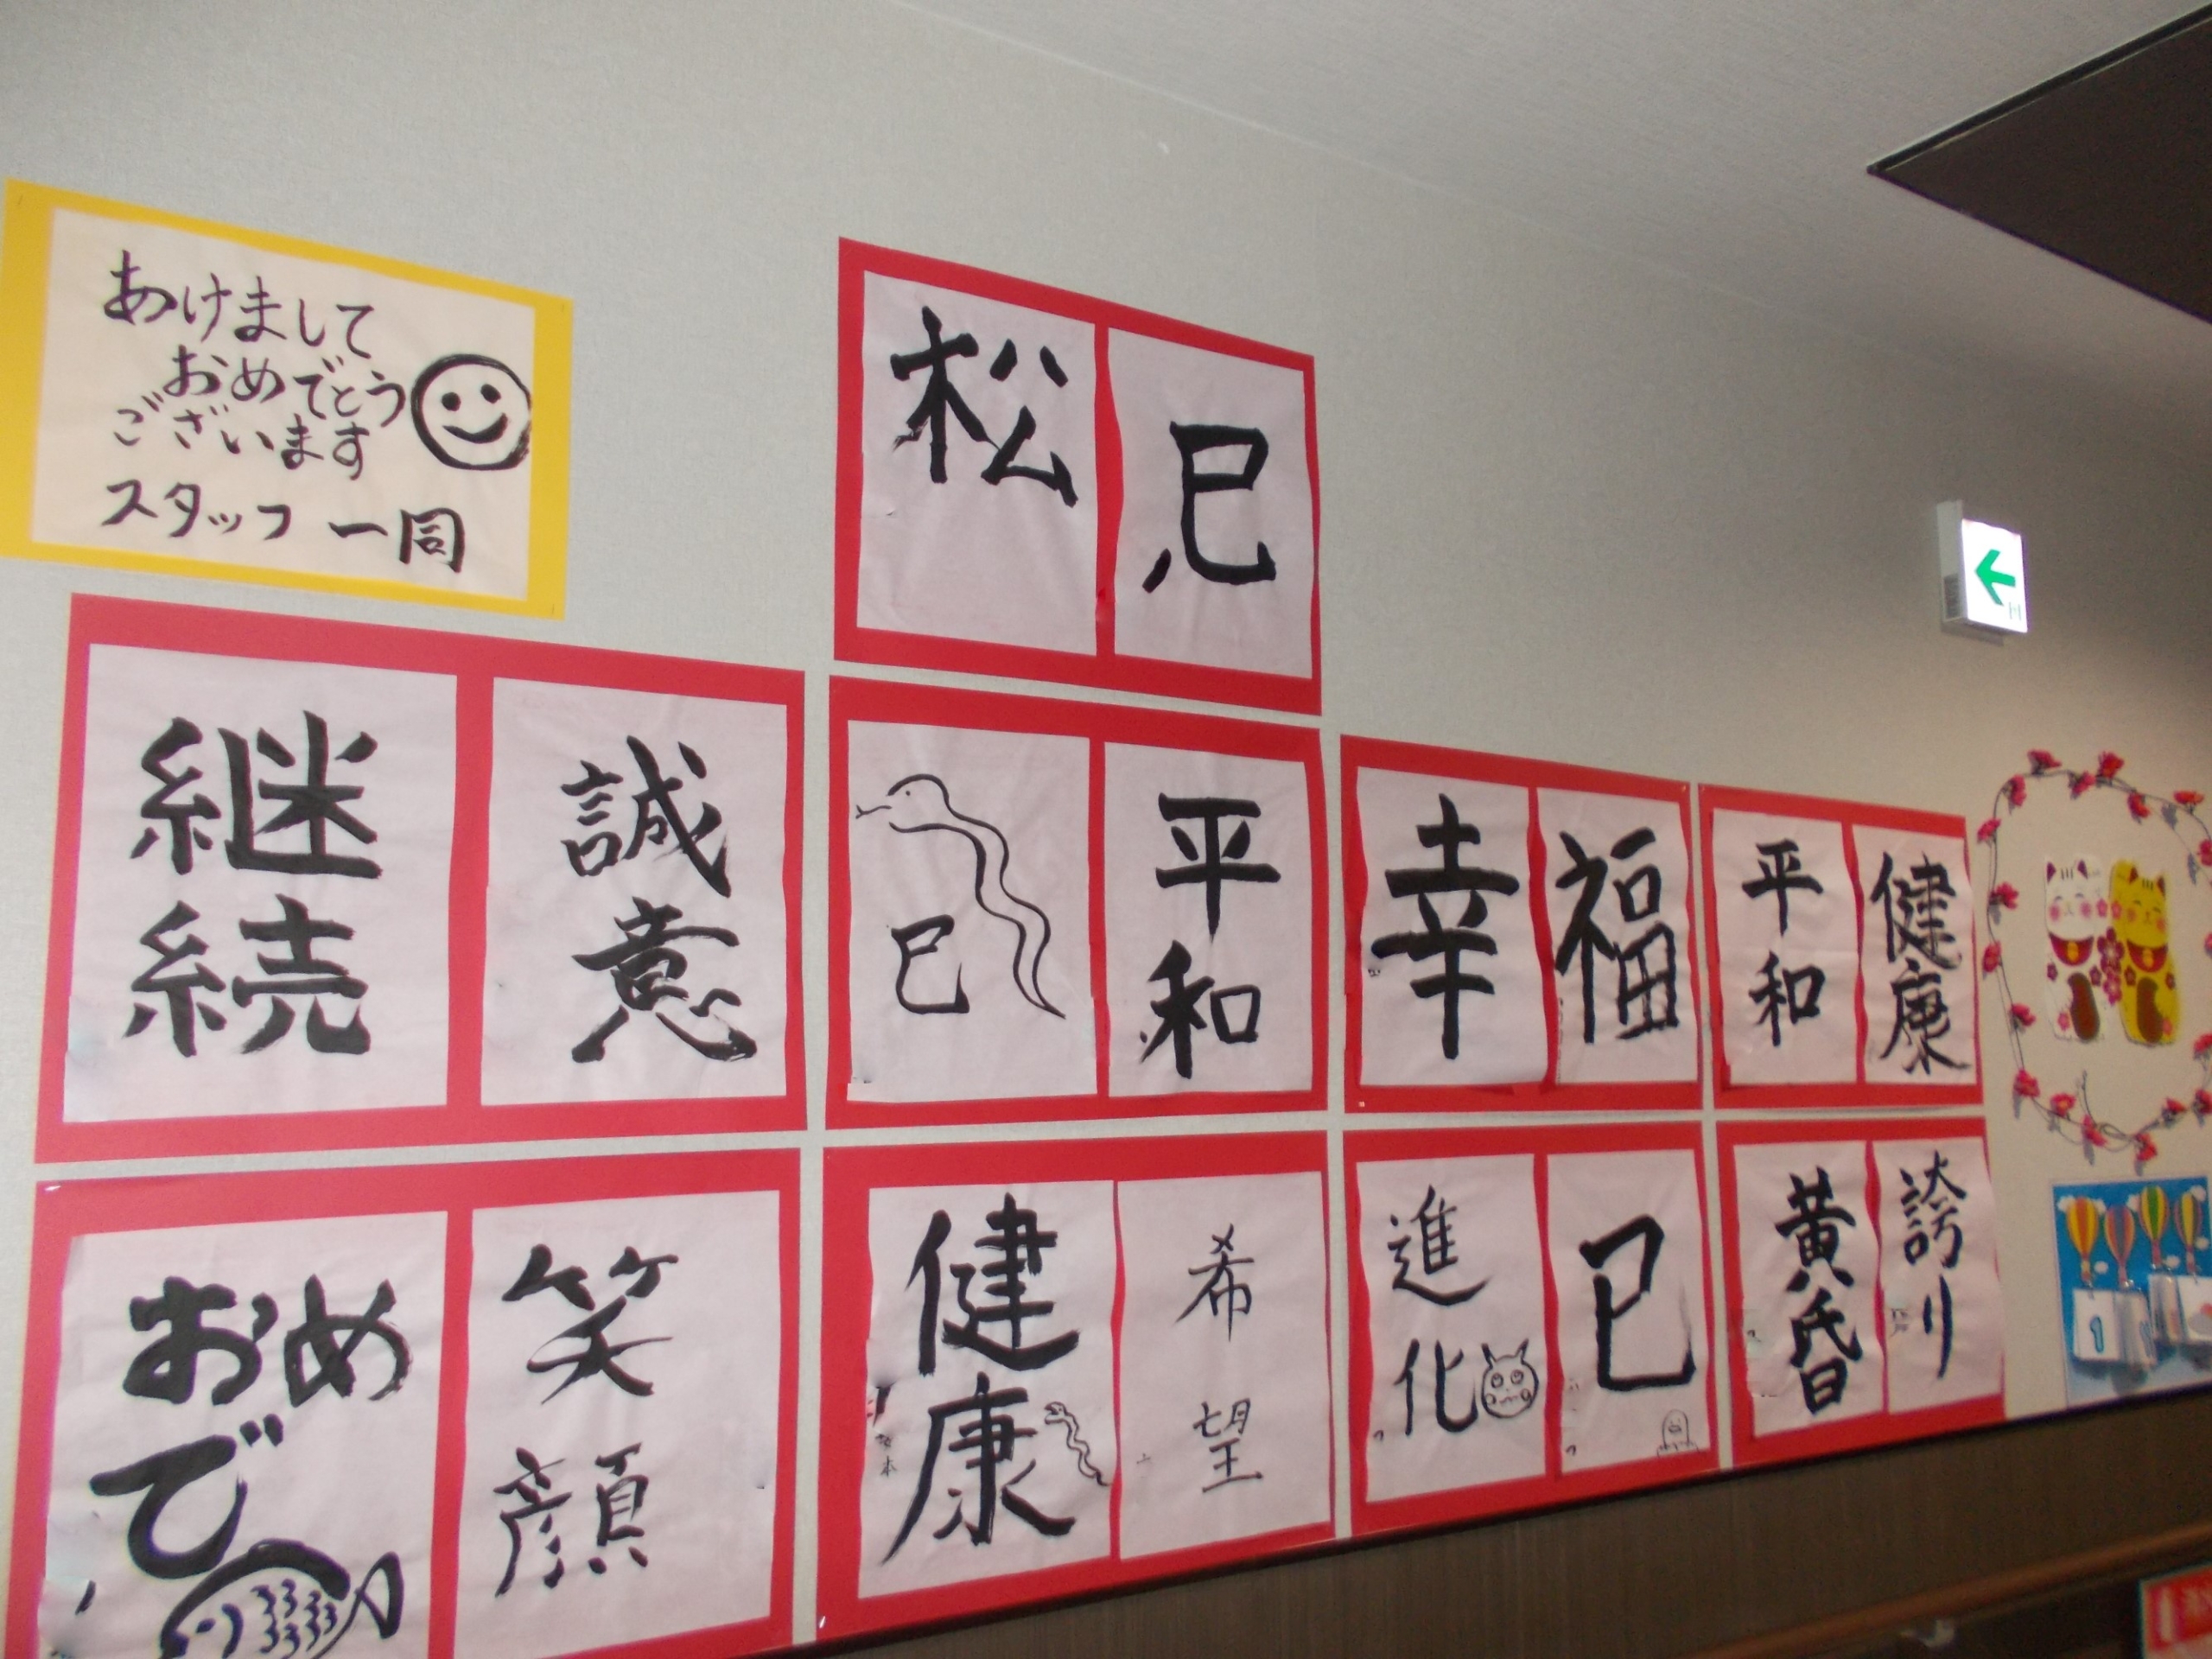 あけまして
おめでとう
ございます
スタッフ 一同
松
巳
継続
誠意
巳
平和
幸
福
平和
健康
おめ
で
笑顔
健康
希望
進化
巳
黄昏
誇り
1